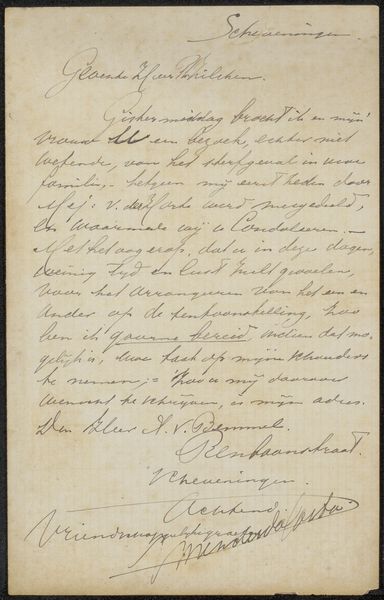 Scheveningen.
Geachte Heer Philippeau.
Gister middag bracht ik en mijn
vrouw U een bezoek, echter niet
wetende, van het sterfgeval in uwe
familie, - hetgeen mij eerst heden door
Mej: v. de werd megedeeld,
en waarmede wij U Condoleeren. -
Met het oog erop, dat u in deze dagen,
weinig tyd en lust zult gevoelen,
voor het arrangeeren van het een en
ander op de tentoonstelling, zoo
ben ik gaarne bereid, indien dat mo-
gelijk is, uwe taak op mijne schouders
te nemen, = zoo u mij daarover
wenscht te schrijven, is mijn adres.
Den Heer A. v. Bemmel.
straat.
Scheveningen.
Achtend